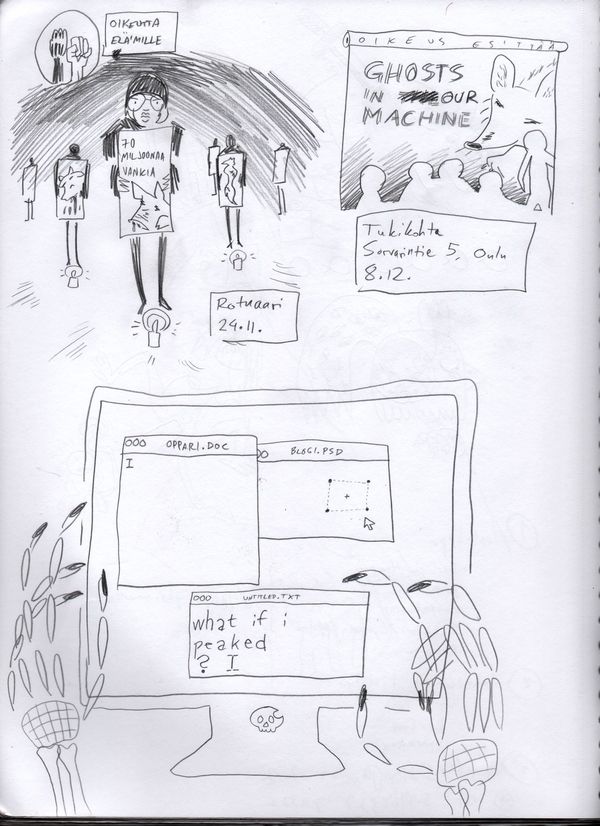 OIKEUTTA
ELÄIMILLE
70
MILJOONAA
VANKIA
Rotuaari
24.11.
OIKEUS ESITTÄÄ
GHOSTS
IN OUR
MACHINE
Tukikohta
Sorvarintie 5, Oulu
8.12.
OPPARI.DOC
BLOGI.PSD
UNTITLED.TXT
what if i
peaked
?